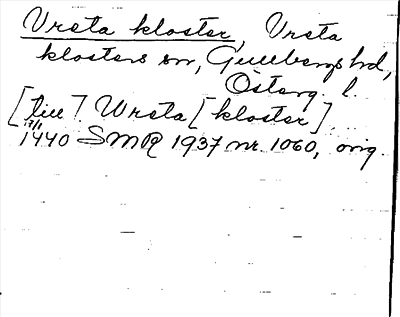 Vreta kloster, Vreta
klosters sn, Gullbergs hd,
Österg. l.
[till] Wreta [kloster]
17/1
1440 SMR 1937 nr. 1060, orig.